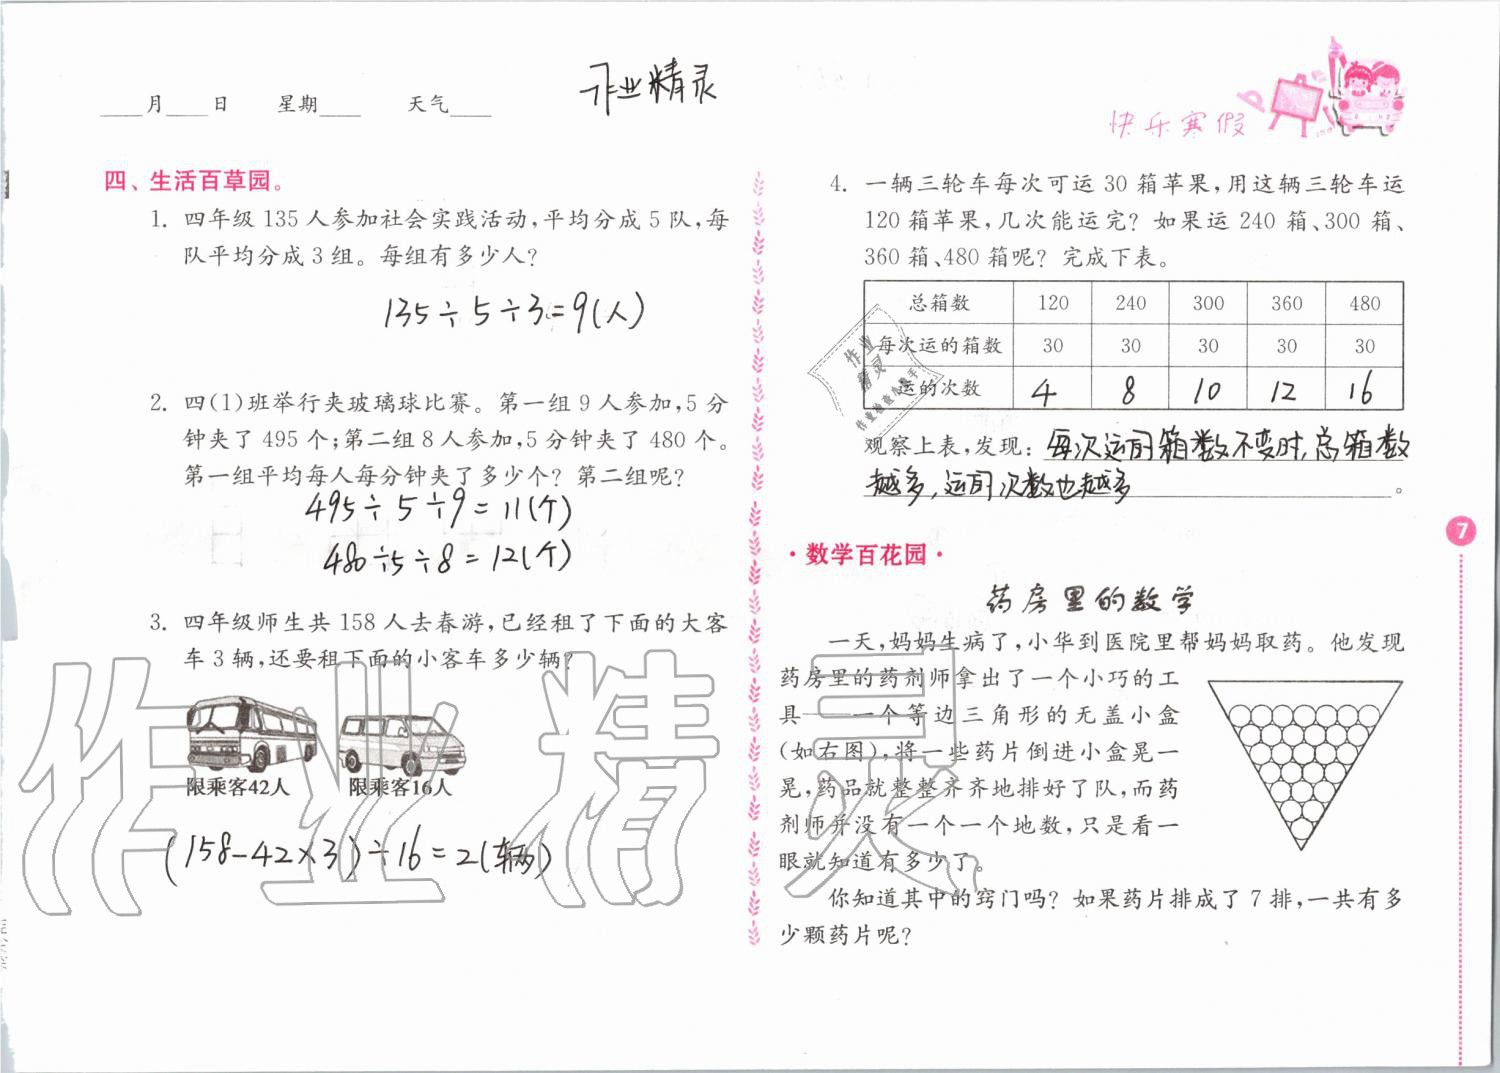 ____月____日 星期____ 天气____
作业精灵
快乐寒假
四、生活百草园。
1. 四年级 135 人参加社会实践活动,平均分成 5 队,每
队平均分成 3 组。每组有多少人?
135÷5÷3=9(人)
2. 四(1)班举行夹玻璃球比赛。第一组 9 人参加,5 分
钟夹了 495 个;第二组 8 人参加,5 分钟夹了 480 个。
第一组平均每人每分钟夹了多少个? 第二组呢?
495÷5÷9=11(个)
480÷5÷8=12(个)
3. 四年级师生共 158 人去春游,已经租了下面的大客
车 3 辆,还要租下面的小客车多少辆?
限乘客42人 限乘客16人
(158-42×3)÷16=2(辆)
4. 一辆三轮车每次可运 30 箱苹果,用这辆三轮车运
120 箱苹果,几次能运完? 如果运 240 箱、300 箱、
360 箱、480 箱呢? 完成下表。
总箱数 120 240 300 360 480
每次运的箱数 30 30 30 30 30
运的次数 4 8 10 12 16
观察上表,发现: 每次运的箱数不变时,总箱数
越多,运的次数也越多。
7
·数学百花园·
药房里的数学
一天,妈妈生病了,小华到医院里帮妈妈取药。他发现
药房里的药剂师拿出了一个小巧的工
具——一个等边三角形的无盖小盒
(如右图),将一些药片倒进小盒晃一
晃,药品就整整齐齐地排好了队,而药
剂师并没有一个一个地数,只是看一
眼就知道有多少了。
你知道其中的窍门吗? 如果药片排成了 7 排,一共有多
少颗药片呢?
作业精灵
作业
精灵
作业检查小帮手